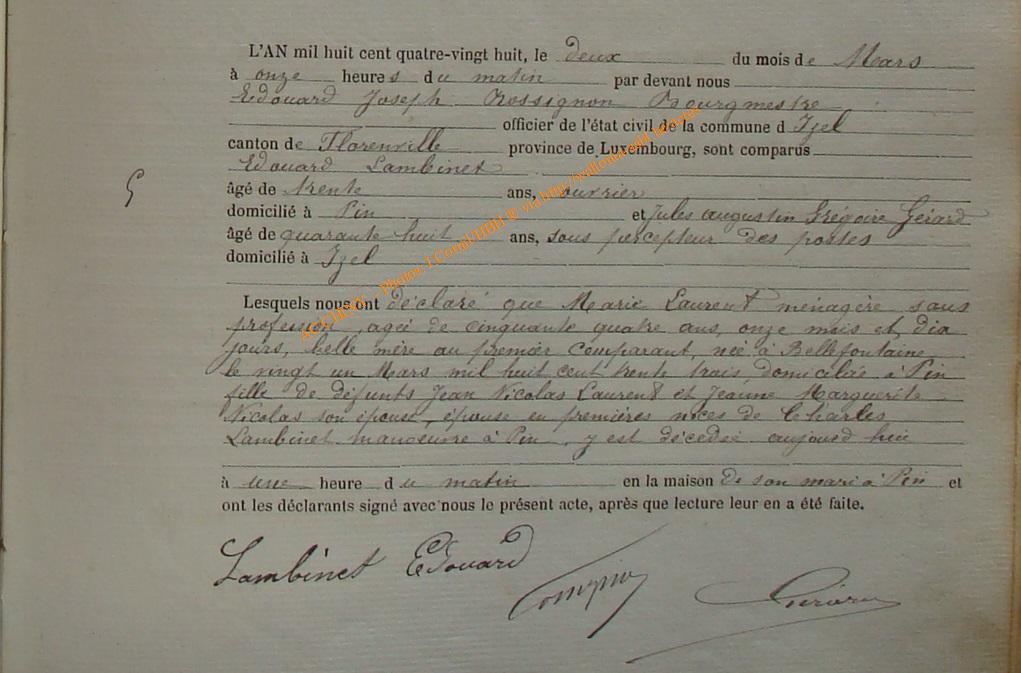 L'AN mil huit cent quatre-vingt huit, le deux du mois de Mars
à onze heures du matin par devant nous
Edouard Joseph Rossignon Bourgmestre
officier de l'état civil de la commune d Izel
canton de Florenville province de Luxembourg, sont comparus
Edouard Lambinet
âgé de trente ans, ouvrier
domicilié à Pin et Jules augustin Grégoire Gérard
âgé de quarante huit ans, sous percepteur des postes
domicilié à Izel
5
Lesquels nous ont déclaré que Marie Laurent ménagère sans
profession, agée de cinquante quatre ans, onze mois et dix
jours, belle mère au premier comparant, née à Bellefontaine
le vingt un Mars mil huit cent trente trois, domiciliée à Pin
fille de défunts Jean Nicolas Laurent et Jeanne Marguerite
Nicolas son épouse, épouse en premières noces de Charles
Lambinet manoeuvre à Pin, y est décédée aujourd hui
à une heure du matin en la maison de son mari à Pin et
ont les déclarants signé avec nous le présent acte, après que lecture leur en a été faite.
Lambinet Edouard